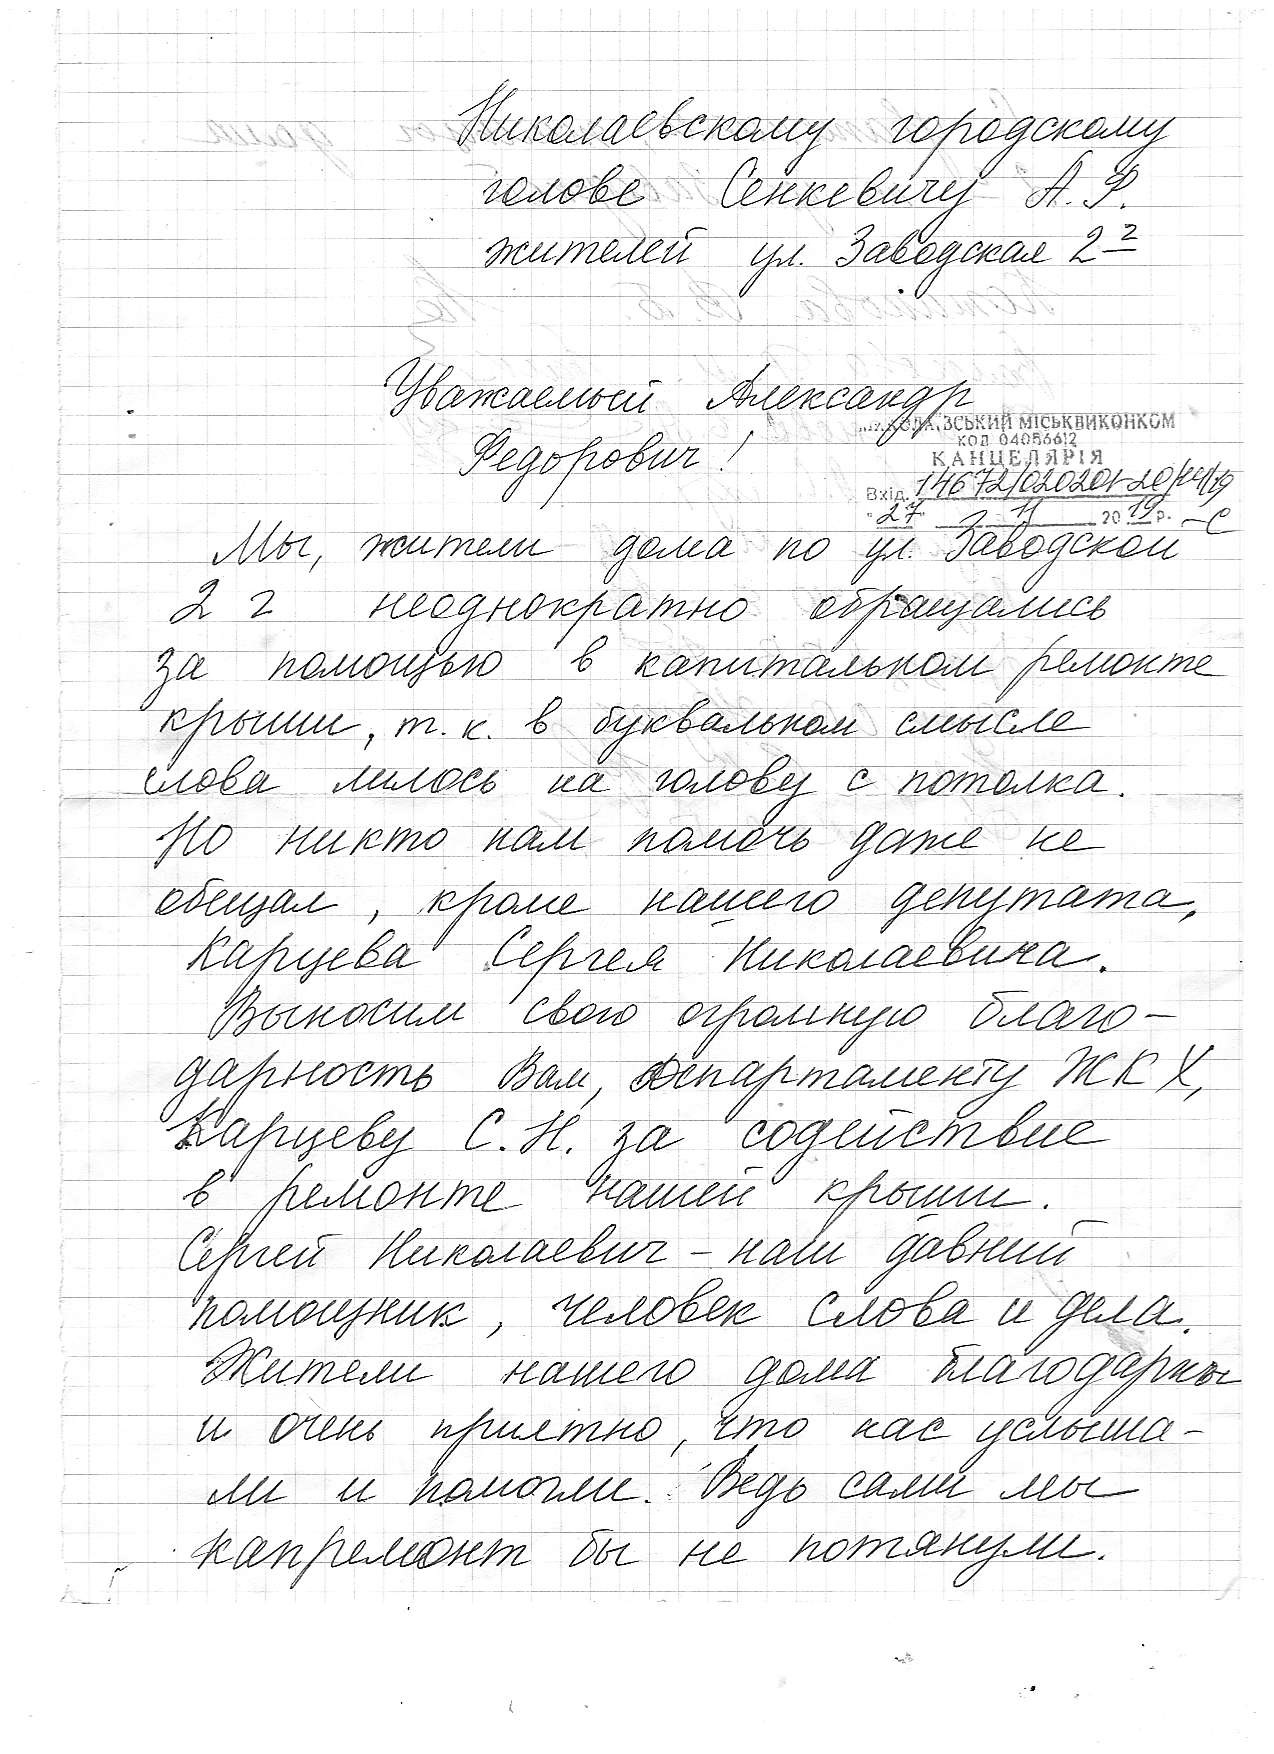 Николаевскому городскому
голове Сенкевичу А.Ф.
жителей ул. Заводская 2г
Уважаемый Александр
Федорович!
МИКОЛАЇВСЬКИЙ МІСЬКВИКОНКОМ
КОД 04056612
КАНЦЕЛЯРІЯ
Вхід. 14672/020201-20/14/19
"27" 11 2019 р.
Мы, жители дома по ул. Заводской
2 г неоднократно обращались
за помощью в капитальном ремонте
крыши, т.к. в буквальном смысле
слова лилось на голову с потолка.
Но никто нам помочь даже не
обещал, кроме нашего депутата,
Карцева Сергея Николаевича.
Выносим свою огромную благо-
дарность Вам, Департаменту ЖКХ,
Карцеву С.Н. за содействие
в ремонте нашей крыши.
Сергей Николаевич - наш давний
помощник, человек слова и дела.
Жители нашего дома благодарны
и очень приятно, что нас услыша-
ли и помогли. Ведь сами мы
капремонт бы не потянули.